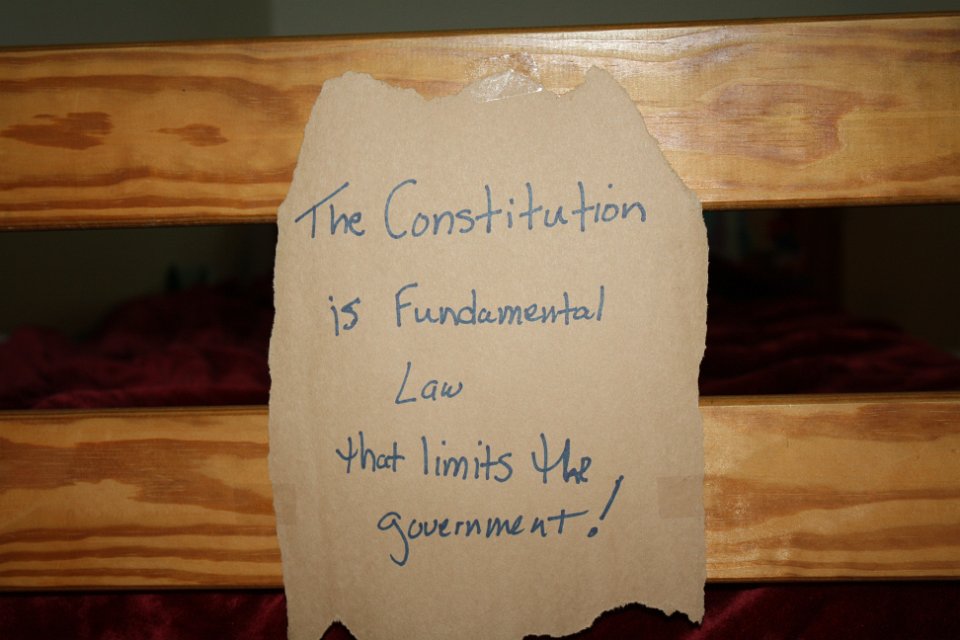 The Constitution
is Fundamental
Law
that limits the
government!